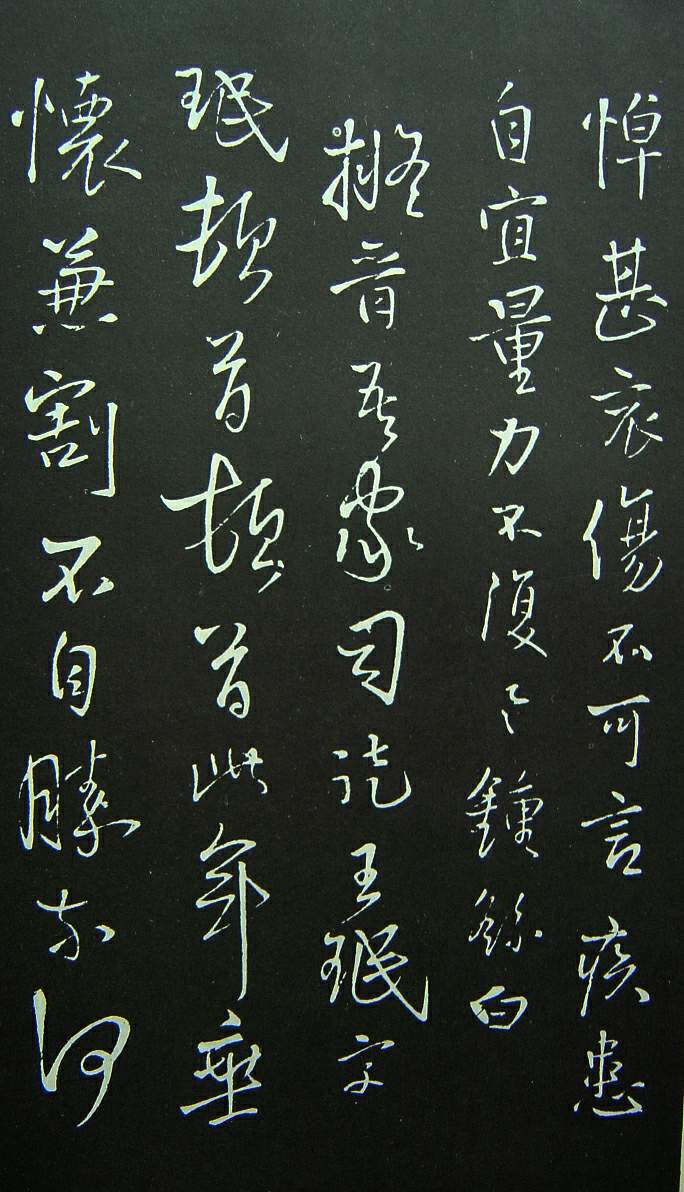 悼甚哀傷不可言疾患
自宜量力不復鍾繇白
擬晉吾家司徒王珉字
珉頓首頓首此年垂
懷兼割不自勝奈何